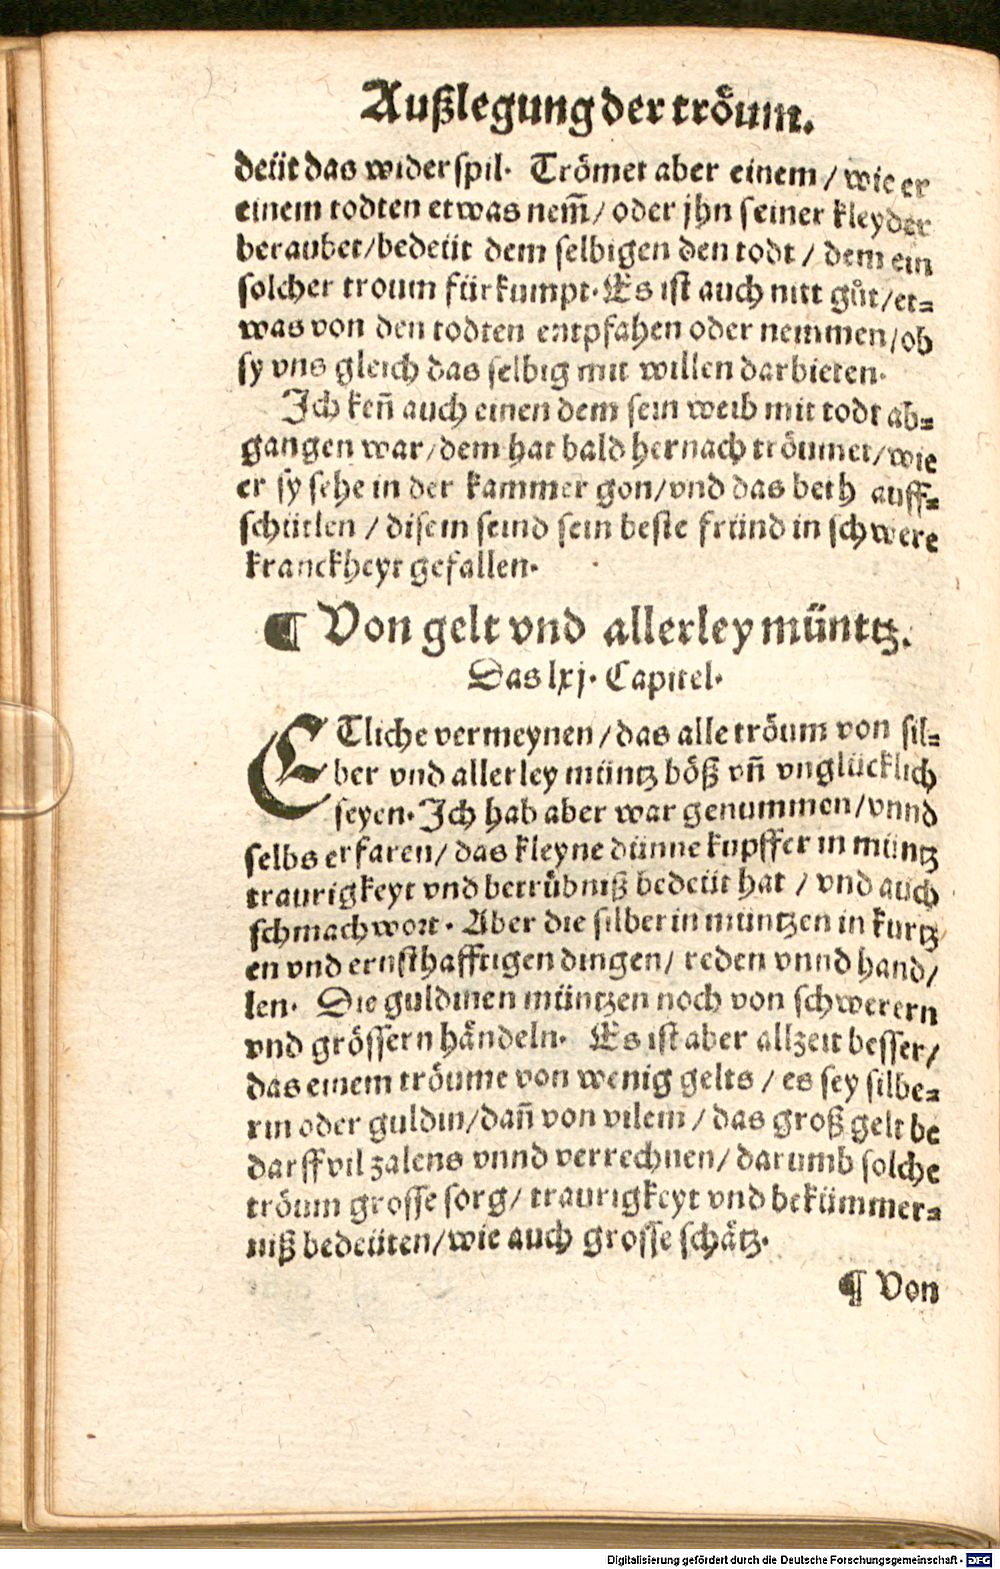 Außlegung der tröum.
deüt das widerspil. Trömet aber einem / wie er
einem todten etwas nem̃ / oder jhn seiner kleyder
beraubet / bedeüt dem selbigen den todt / dem ein
solcher troum fürkumpt. Es ist auch nitt gůt / et⸗
was von den todten entpfahen oder nemmen / ob
sy vns gleich das selbig mit willen darbieten.
Ich keñ auch einen dem sein weib mit todt ab⸗
gangen war / dem hat bald hernach tröumet / wie
er sy sehe in der kammer gon / vnd das beth auff⸗
schütlen / disem seind sein beste fründ in schwere
kranckheyt gefallen.
¶ Von gelt vnd allerley münttz.
Das lxj. Capitel.
ETliche vermeynen / das alle tröum von sil⸗
ber vnd allerley müntz böß vñ vnglücklich
seyen. Ich hab aber war genummen / vnnd
selbs erfaren / das kleyne dünne kupfferin müntz
traurigkeyt vnd betrübniß bedeüt hat / vnd auch
schmachwort. Aber die silberin müntzen in kurtz
en vnd ernsthafftigen dingen / reden vnnd hand /
len. Die guldinen müntzen noch von schwerern
vnd grössern händeln. Es ist aber allzeit besser /
das einem tröume von wenig gelts / es sey silbe⸗
rin oder guldin / dañ von vilem / das groß gelt be
darff vil zalens vnnd verrechnen / darumb solche
tröum grosse sorg / traurigkeyt vnd bekümmer⸗
niß bedeüten / wie auch grosse schätz.
¶ Von
Digitalisierung gefördert durch die Deutsche Forschungsgemeinschaft - DFG